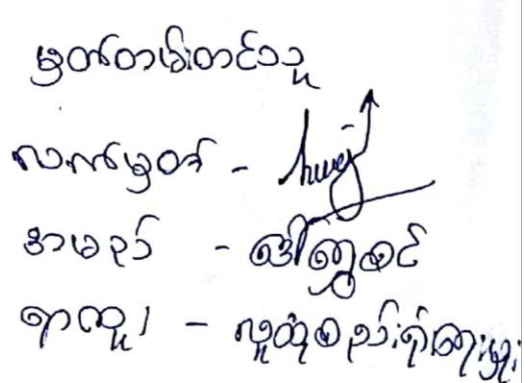 မှတ်တမ်းတင်သူ
လက်မှတ် -
အမည် - ဒေါ်ရွှေစင်
ရာထူး - လူထုစည်းရုံးရေးမှူး